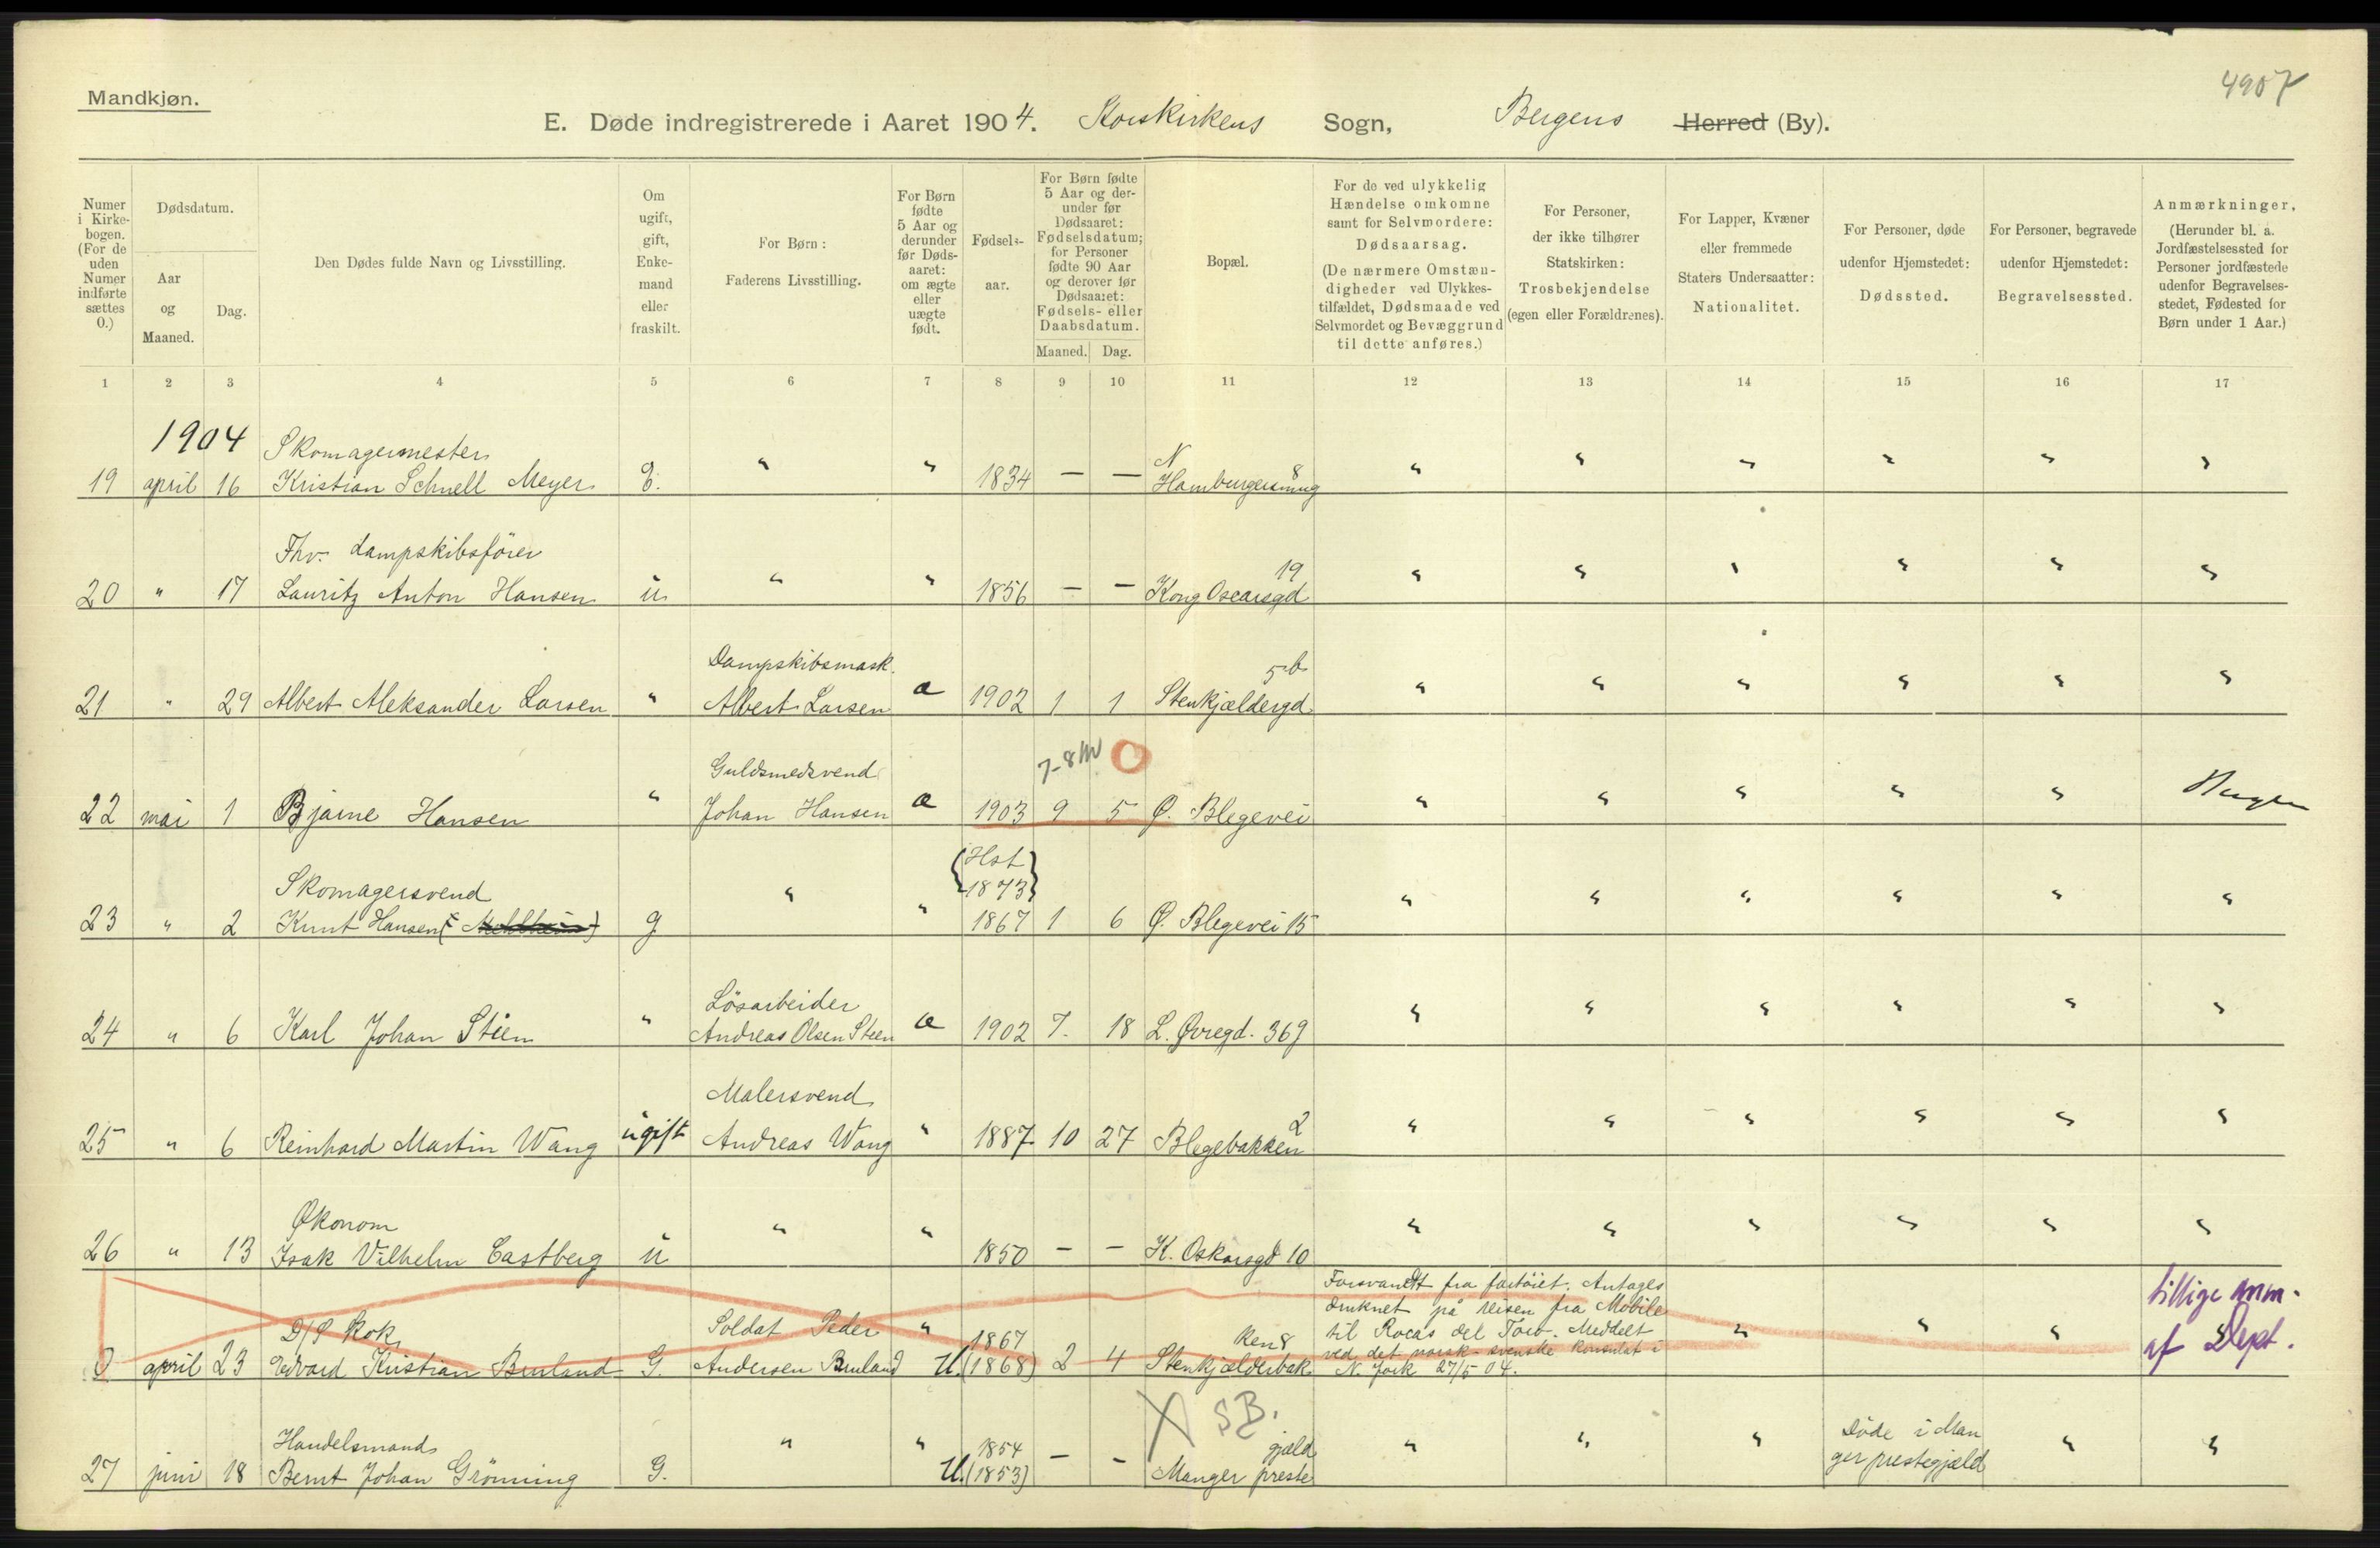 4907
Mandkjøn.
E. Døde indregistrerede i Aaret 1904. Korskirkens Sogn, Bergens Herred (By).
Numer i Kirkebogen. (For de uden Numer indførte sættes 0.)
Dødsdatum.
Aar og Maaned.
Dag.
Den Dødes fulde Navn og Livsstilling.
Om ugift, gift, Enkemand eller fraskilt.
For Børn: Faderens Livsstilling.
For Børn fødte 5 Aar og derunder før Dødsaaret: om ægte eller uægte født.
Fødselsaar.
For Børn fødte 5 Aar og derunder før Dødsaaret: Fødselsdatum; for Personer fødte 90 Aar og derover før Dødsaaret: Fødsels- eller Daabsdatum.
Maaned. Dag.
Bopæl.
For de ved ulykkelig Hændelse omkomne samt for Selvmordere: Dødsaarsag. (De nærmere Omstændigheder ved Ulykkestilfældet, Dødsmaade ved Selvmordet og Bevæggrund til dette anføres.)
For Personer, der ikke tilhører Statskirken: Trosbekjendelse (egen eller Forældrenes).
For Lapper, Kvæner eller fremmede Staters Undersaatter: Nationalitet.
For Personer, døde udenfor Hjemstedet: Dødssted.
For Personer, begravede udenfor Hjemstedet: Begravelsessted.
Anmærkninger, (Herunder bl. a. Jordfæstelsessted for Personer jordfæstede udenfor Begravelsesstedet, Fødested for Børn under 1 Aar.)
1 2 3 4 5 6 7 8 9 10 11 12 13 14 15 16 17
1904 Skomagermester N 8
19 april 16 Kristian Schnell Meyer E. " " 1834 — — Hamburgersmug " " " " " "
Fhv. dampskibsfører 19
20 " 17 Lauritz Anton Hansen u " " 1856 — — Kong Oscarsgd " " " " " "
Dampskibsmask. 5b
21 " 29 Albert Aleksander Larsen " Albert Larsen a 1902 1 1 Stenkjældergd. " " " " " "
Guldsmedsvend 7-8 M O
22 mai 1 Bjarne Hansen " Johan Hansen a 1903 9 5 Ø. Blegevei " " " " " Bergen
Skomagersvend (Hst 1873)
23 " 2 Knut Hansen g " " 1867 1 6 Ø. Blegevei 15 " " " " " "
Lösarbeider
24 " 6 Karl Johan Stien " Andreas Olsen Steen a 1902 7. 18 L. Øvregd. 369 " " " " " "
Malersvend 2
25 " 6 Reinhard Martin Wang ugift Andreas Wang " 1887 10 27 Blegebakken " " " " " "
Økonom
26 " 13 Isak Vilhelm Castberg u " " 1850 — — K. Oskarsgd 10 " " " " " "
Forsvandt fra fartöiet. Antages
druknet på reisen fra Mobile tillige anm.
D/S Kok Soldat Peder " 1867 ken 8 til Rocas del Toro. Meddelt " " " af Dept.
ved det norsk-svenske konsulat i
0 april 23 Edvard Kristian Bruland G. Andersen Bruland U. (1868) 2 4 Stenkjælderbak N. York 27/5 04.
X SB.
Handelsmand " " 1854 gjæld " " " Döde i Man " "
27 juni 18 Bernt Johan Grönning G. U. (1853) — — Manger preste ger prestegjæld